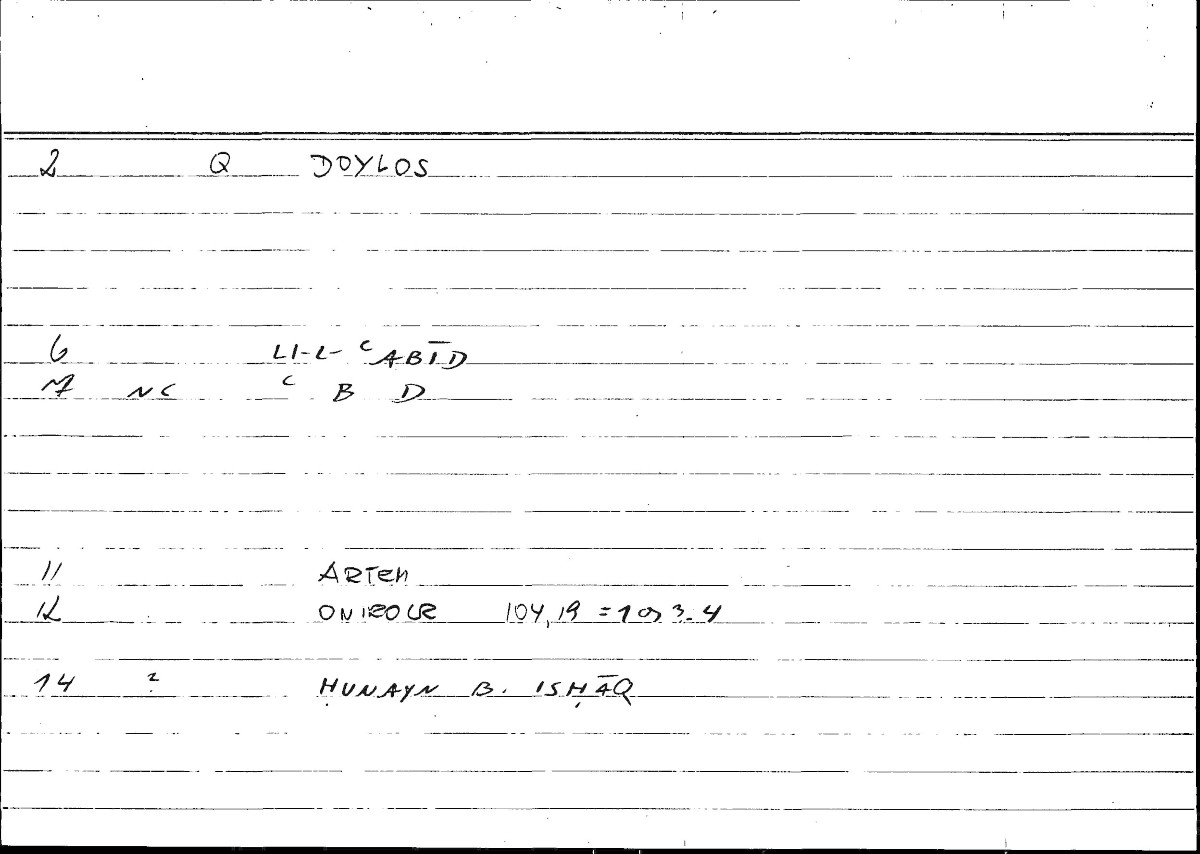 2 Q DOYLOS
6 LI-L-ʿABĪD
7 NC ʿ B D
11 ARTEM
12 ONIROCR 104,19 = 109 3-4
14 ? ḤUNAYN B. ISḤĀQ